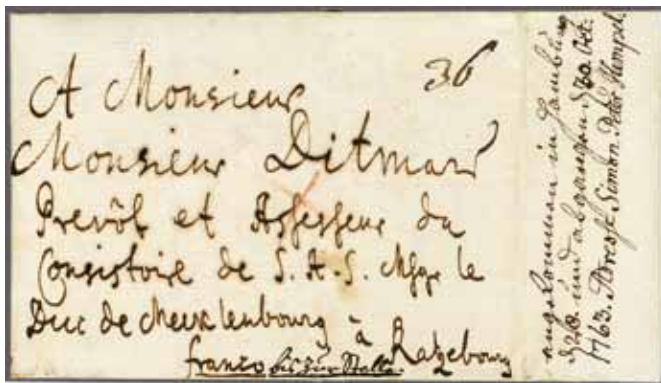 36
A Monsieur
Monsieur Ditmar
Prevôt et Assesseur du
Consistoire de S. A. S. Msgr le
Duc de Mecklenbourg à
Ratzebourg
franco bis zur Stelle.
angekommen in Hamburg
d 28. und abgangen d 30. Oct.
1763. Simon Peter Hempel.